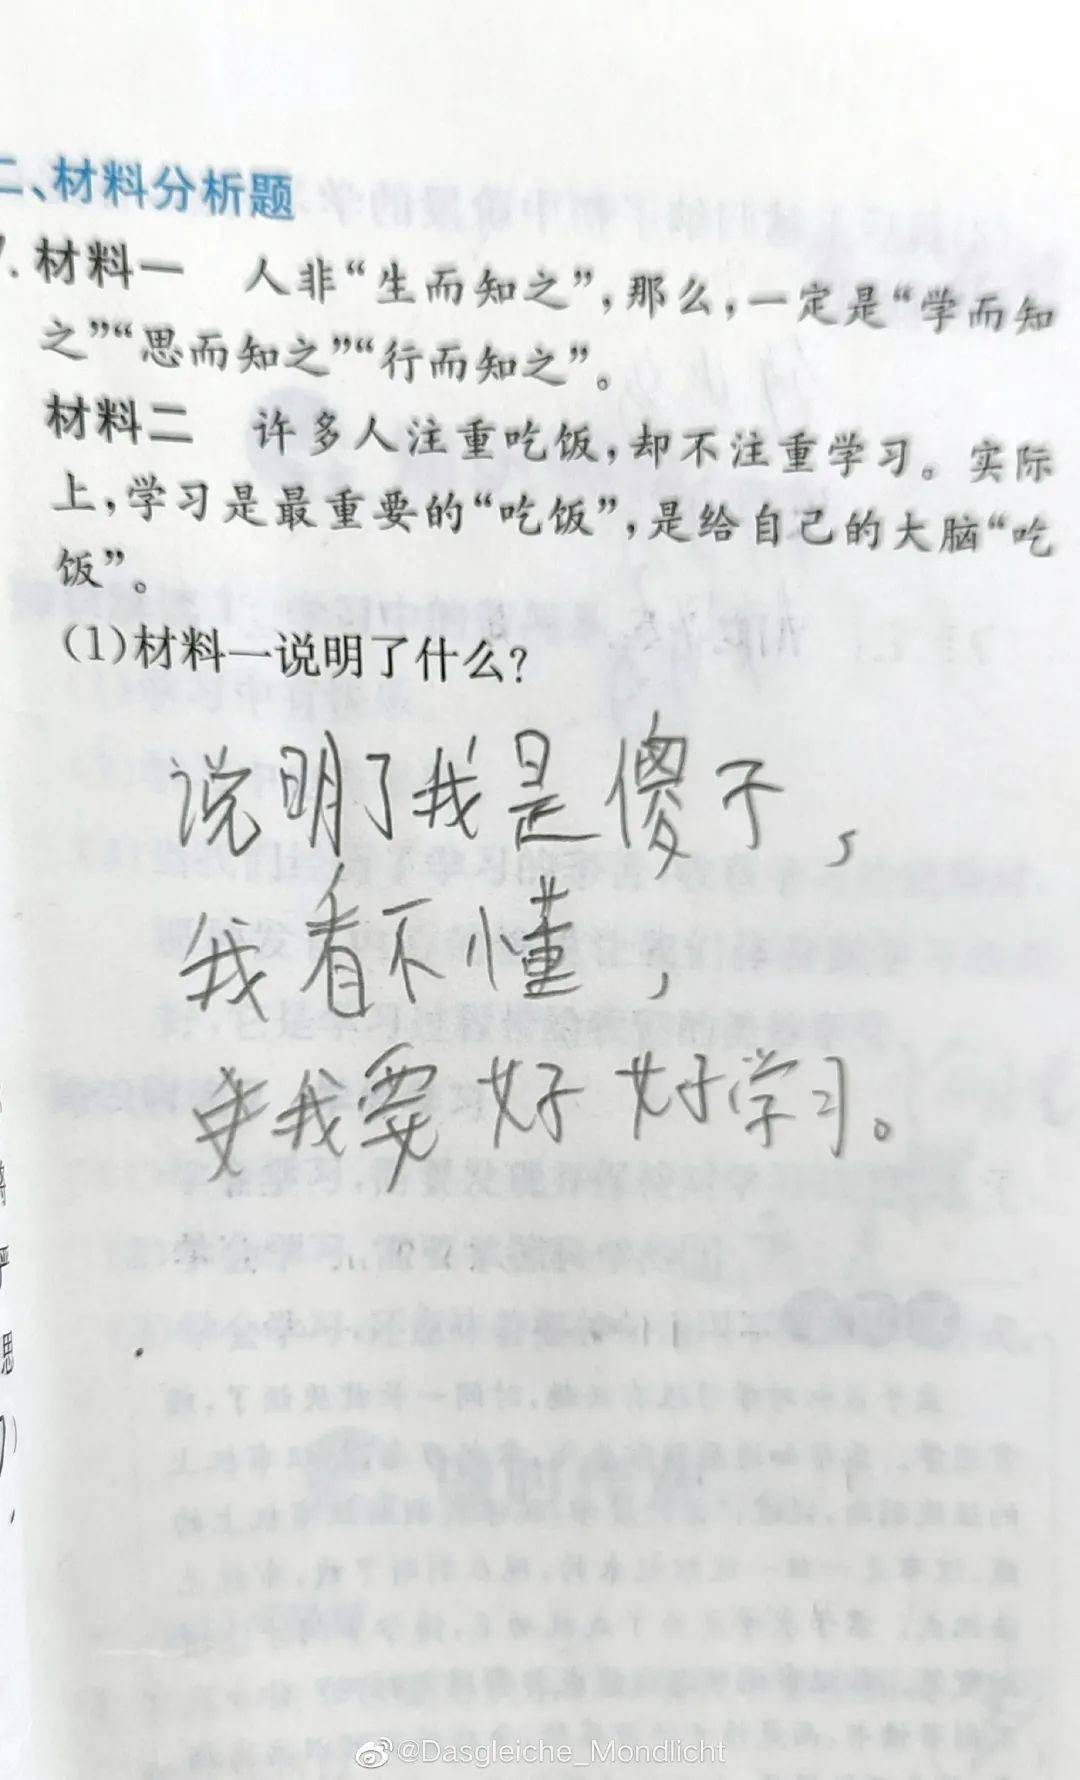 二、材料分析题
7. 材料一 人非“生而知之”,那么,一定是“学而知
之”“思而知之”“行而知之”。
材料二 许多人注重吃饭,却不注重学习。实际
上,学习是最重要的“吃饭”,是给自己的大脑“吃
饭”。
(1)材料一说明了什么?
说明了我是傻子,
我看不懂,
我要好好学习。
思
@Dasgleiche_Mondlicht